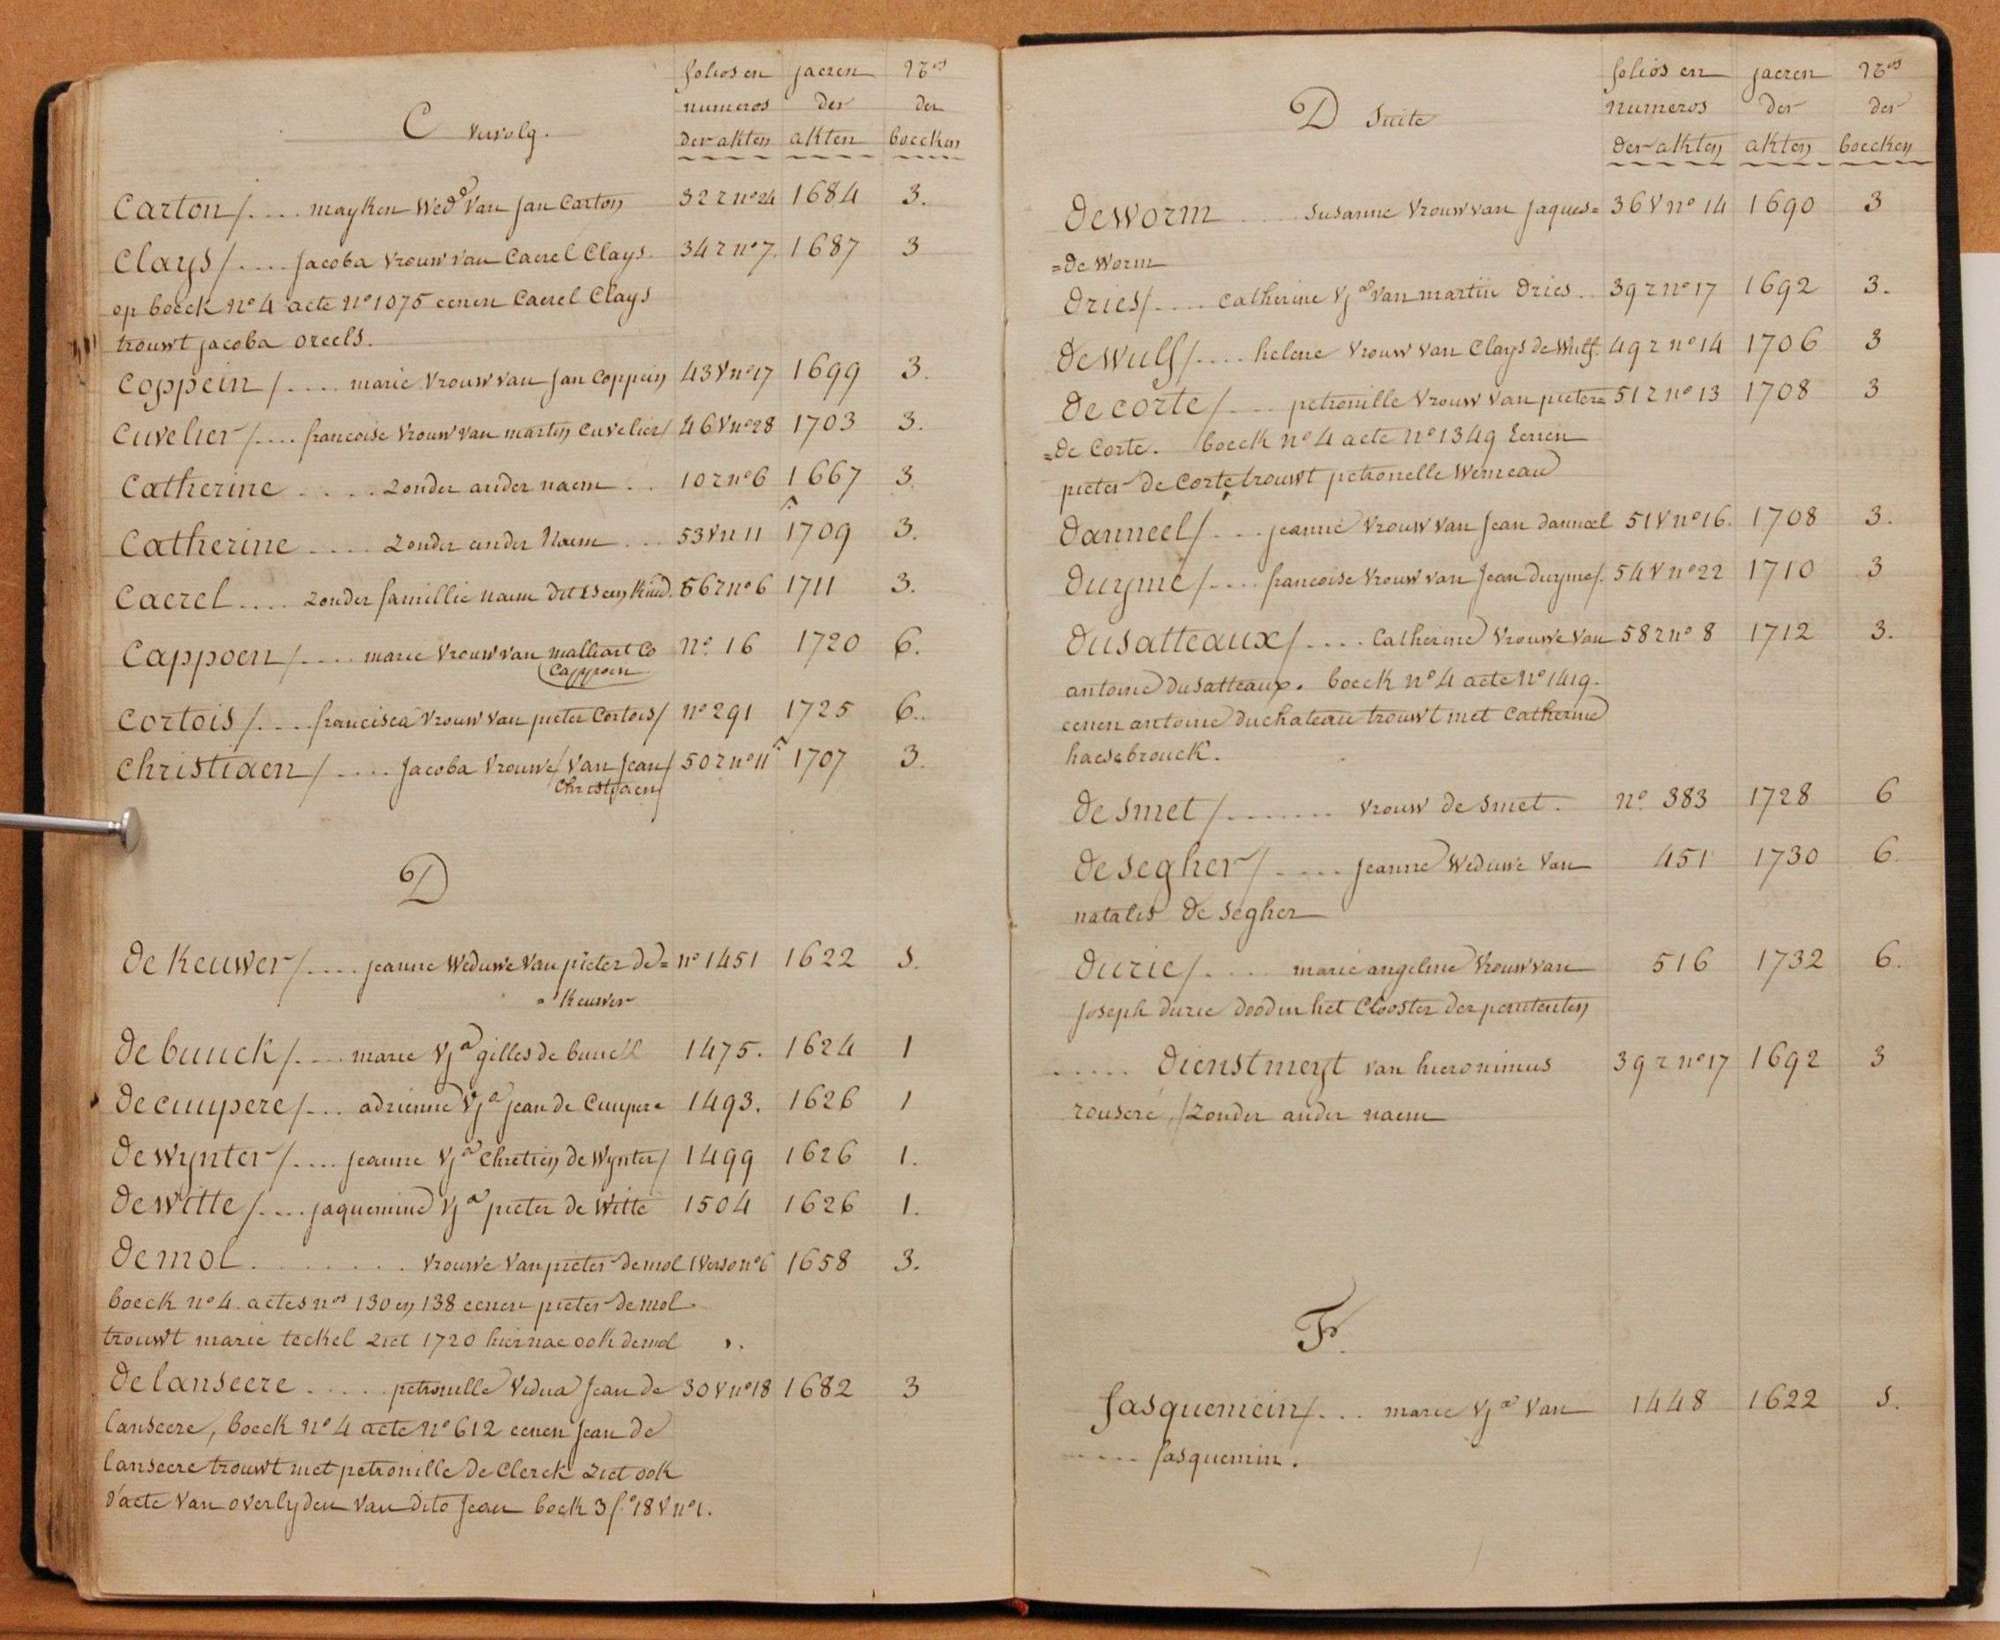 C vervolg.
folios en jaeren Nos
numeros der der
der akten akten boecken
Carton/.... mayken Wede van Jan Carton 32 r no 24 1684 3.
Clays/.... Jacoba vrouw van Caerel Clays. 34 r no 7. 1687 3
op boeck no 4 acte no 1075 eenen Caerel Clays
trouwt jacoba oreels.
Coppein/.... marie vrouw van Jan Coppein 43 v no 17 1699 3.
Cuvelier/.... francoise vrouw van martin Cuvelier/ 46 v no 28 1703 3.
Catherine ..... zonder ander naem .. 10 r no 6 1667 3.
Catherine .... zonder ander Naem ... 53 v n 11 1709 3.
Caerel .... zonder famillie naem dit is een kind. 56 r no 6 1711 3.
Cappoen/.... marie vrouw van malliart Co no. 16 1720 6.
Cappoen
Cortois/.... francisca vrouw van pieter Cortois/ no 291 1725 6.
Christiaen/.... Jacoba vrouwe van Jean/ 50 r no 11 1707 3.
Christiaen/
D
de Keuwer/.... jeanne Weduwe van pieter de= no 1451 1622 1.
= Keuwer
de buuck/.... marie Va gilles de buuck 1475. 1624 1
de cuupere/... adrienne Va jean de Cuupere 1493. 1626 1
de wynter/.... jeanne Va Chretien de Wynter/ 1499 1626 1.
de witte/.... jaquemine Va pieter de Witte 1504 1626 1.
de mol ........ vrouwe van pieter de mol 1 verso no 6 1658 3.
boeck no 4. actes nos 130 en 138 eenen pieter de mol
trouwt marie teckel ziet 1720 hiernae ook de mol
de lanseere ..... petronille Vidua Jean de 30 v no 18 1682 3
lanseere, boeck no 4 acte no 612 eenen Jean de
lanseere trouwt met petronille de Clerck ziet ook
d'acte van overlyden van dito Jean boek 3 fo 18 v no 1.
D Suite
folios en jaeren Nos
numeros der der
der akten akten boecken
de worm .... Susanne vrouw van Jaques= 36 v no 14 1690 3
=de Worm
dries/.... Catherine Va van martin dries .. 39 r no 17 1692 3.
de wulf/.... helene vrouw van Clays de Wulf. 49 r no 14 1706 3
de corte/.... petronille vrouw van pieter= 51 r no 13 1708 3
=de Corte. boeck no 4 acte no 1349 Eenen
pieter de Corte trouwt petronelle Werneau
danneel/.... jeanne vrouw van Jean danneel 51 v no 16. 1708 3.
duyme/.... francoise vrouw van Jean duyme/. 54 v no 22 1710 3
dusatteaux/.... Catherine vrouwe van 58 r no 8 1712 3.
antoine dusatteaux. boeck no 4 acte no 1419.
eenen antoine duchateau trouwt met Catherine
haesebrouck.
de smet/....... vrouw de smet. no. 383 1728 6
de segher/.... jeanne weduwe van 451 1730 6.
natalis de segher
durie/.... marie angeline vrouw van 516 1732 6.
joseph durie dood in het Clooster der penitenten
..... dienstmeyt van hieronimus 39 r no 17 1692 3
rousere, /zonder ander naem
F.
fasquemein/... marie Va van 1448 1622 1.
..... fasquemin.